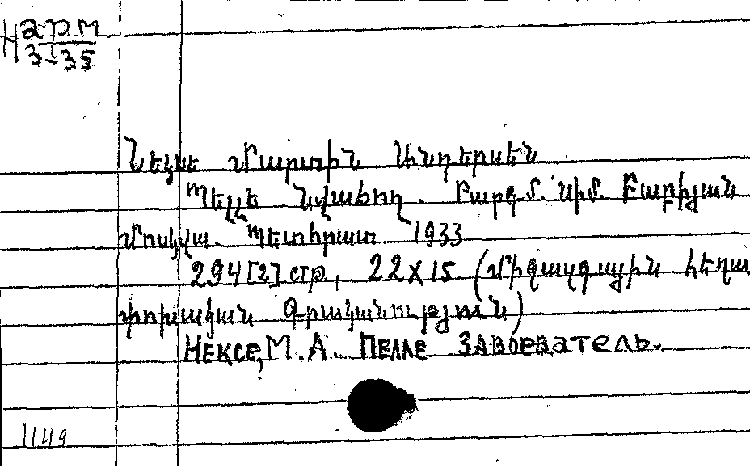 Н арм
3-35
Նեքսե Մարտին Անդերսեն
Պելլե Նվաճող. Թարգմ. Սիմ. Բաբիյան
Մոսկվա. Պետհրատ 1933
294[2] стр, 22x15 (Միջազգային հեղա
փոխական Գրականություն)
НЕКСЕ, М.А. ПЕЛЛЕ ЗАВОЕВАТЕЛЬ.
1149